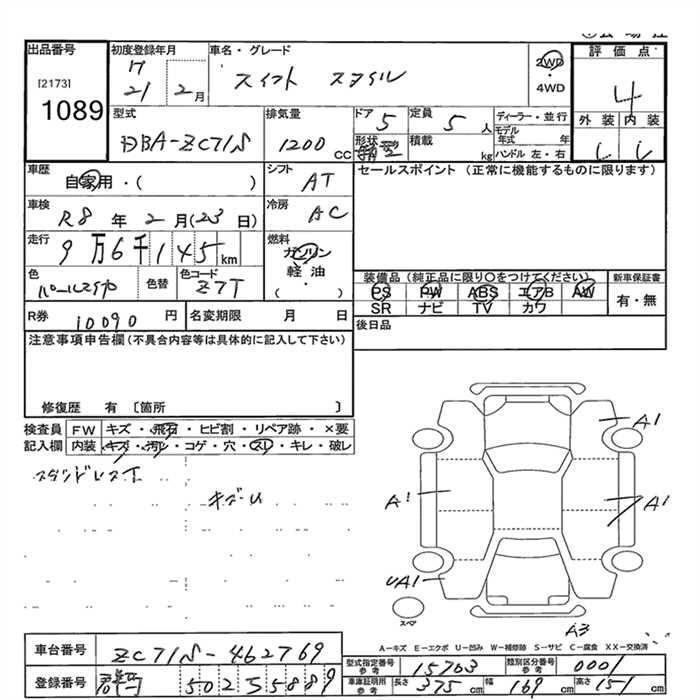 出品番号
[2173]
1089
初度登録年月
21 2 月
車名・グレード
スイフト スタイル
2WD
・
4WD
評価点
4
型式
DBA-ZC71S
排気量
1200 cc
ドア 5
形状
定員 5 人
積載 kg
ディーラー・並行
モデル年式 年
ハンドル 左・右
外装 内装
車歴
自家用・( )
シフト AT
セールスポイント (正常に機能するものに限ります)
車検
R8 年 2 月 (23 日)
冷房 AC
走行
9 万 6 千 145 km
燃料
ガソリン
軽油
・
( )
色
パールホワイト
色替
色コード
Z7T
装備品 (純正品に限り○をつけてください)
PS PW ABS エアB AW
SR ナビ TV カワ
新車保証書
有・無
R券 10090 円
名変期限 月 日
後日品
注意事項申告欄 (不具合内容等は具体的に記入して下さい)
修復歴 有 〔箇所 〕
検査員 FW キズ・飛石・ヒビ割・リペア跡・×要
記入欄 内装 キズ・汚レ・コゲ・穴・スレ・キレ・破レ
キズU
A1
A1
A1
UA1
A3
スペア
A-キズ E-エクボ U-凹み W-補修跡 S-サビ C-腐食 XX-交換済
車台番号 ZC71S-462769
型式指定番号 参考 15763
類別区分番号 参考 0001
登録番号 502 5889
車庫証明用 参考 長さ 375 cm 幅 169 cm 高さ 151 cm